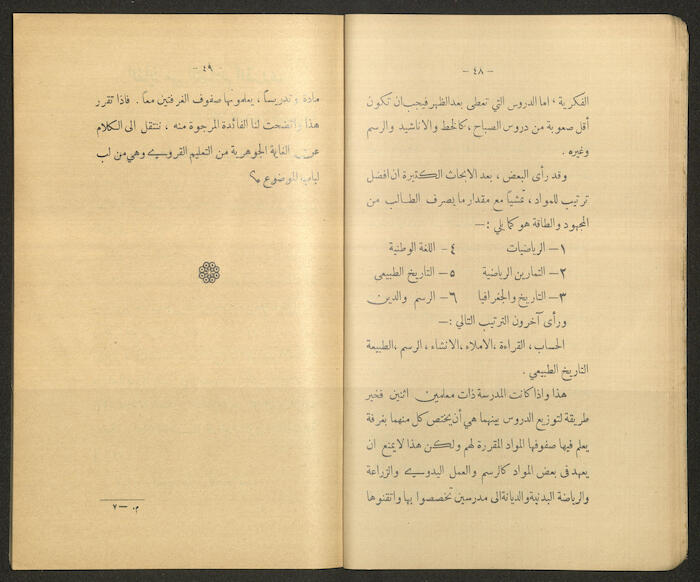 - ٤٨ -
الفكرية ، اما الدروس التي تعطى بعد الظهر فيجب ان تكون
أقل صعوبة من دروس الصباح ، كالخط والاناشيد والرسم
وغيره .
وقد رأى البعض ، بعد الابحاث الكثيرة ان افضل
ترتيب للمواد ، تمشياً مع مقدار ما يصرف الطالب من
المجهود والطاقة هو كما يلي :—
١— الرياضيات ٤— اللغة الوطنية
٢— التمارين الرياضية ٥— التاريخ الطبيعي
٣— التاريخ والجغرافيا ٦— الرسم والدين
ورأى آخرون الترتيب التالي :—
الحساب ، القراءة ، الاملاء ، الانشاء ، الرسم ، الطبيعة
التاريخ الطبيعي .
هذا واذا كانت المدرسة ذات معلمين اثنين فخير
طريقة لتوزيع الدروس بينهما هي أن يختص كل منهما بغرفة
يعلم فيها صفوفها المواد المقررة لهم ولكن هذا لا يمنع ان
يعهد في بعض المواد كالرسم والعمل اليدوي والزراعة
والرياضة البدنية والديانة الى مدرسين تخصصوا بها واتقنوها
- ٤٩ -
مادة وتدريساً ، يعلمونها صفوف الغرفتين معاً . فاذا تقرر
هذا واتضحت لنا الفائدة المرجوة منه ، ننتقل الى الكلام
عن الغاية الجوهرية من التعليم القروي وهي من لب
لباب الموضوع
م. — ٧